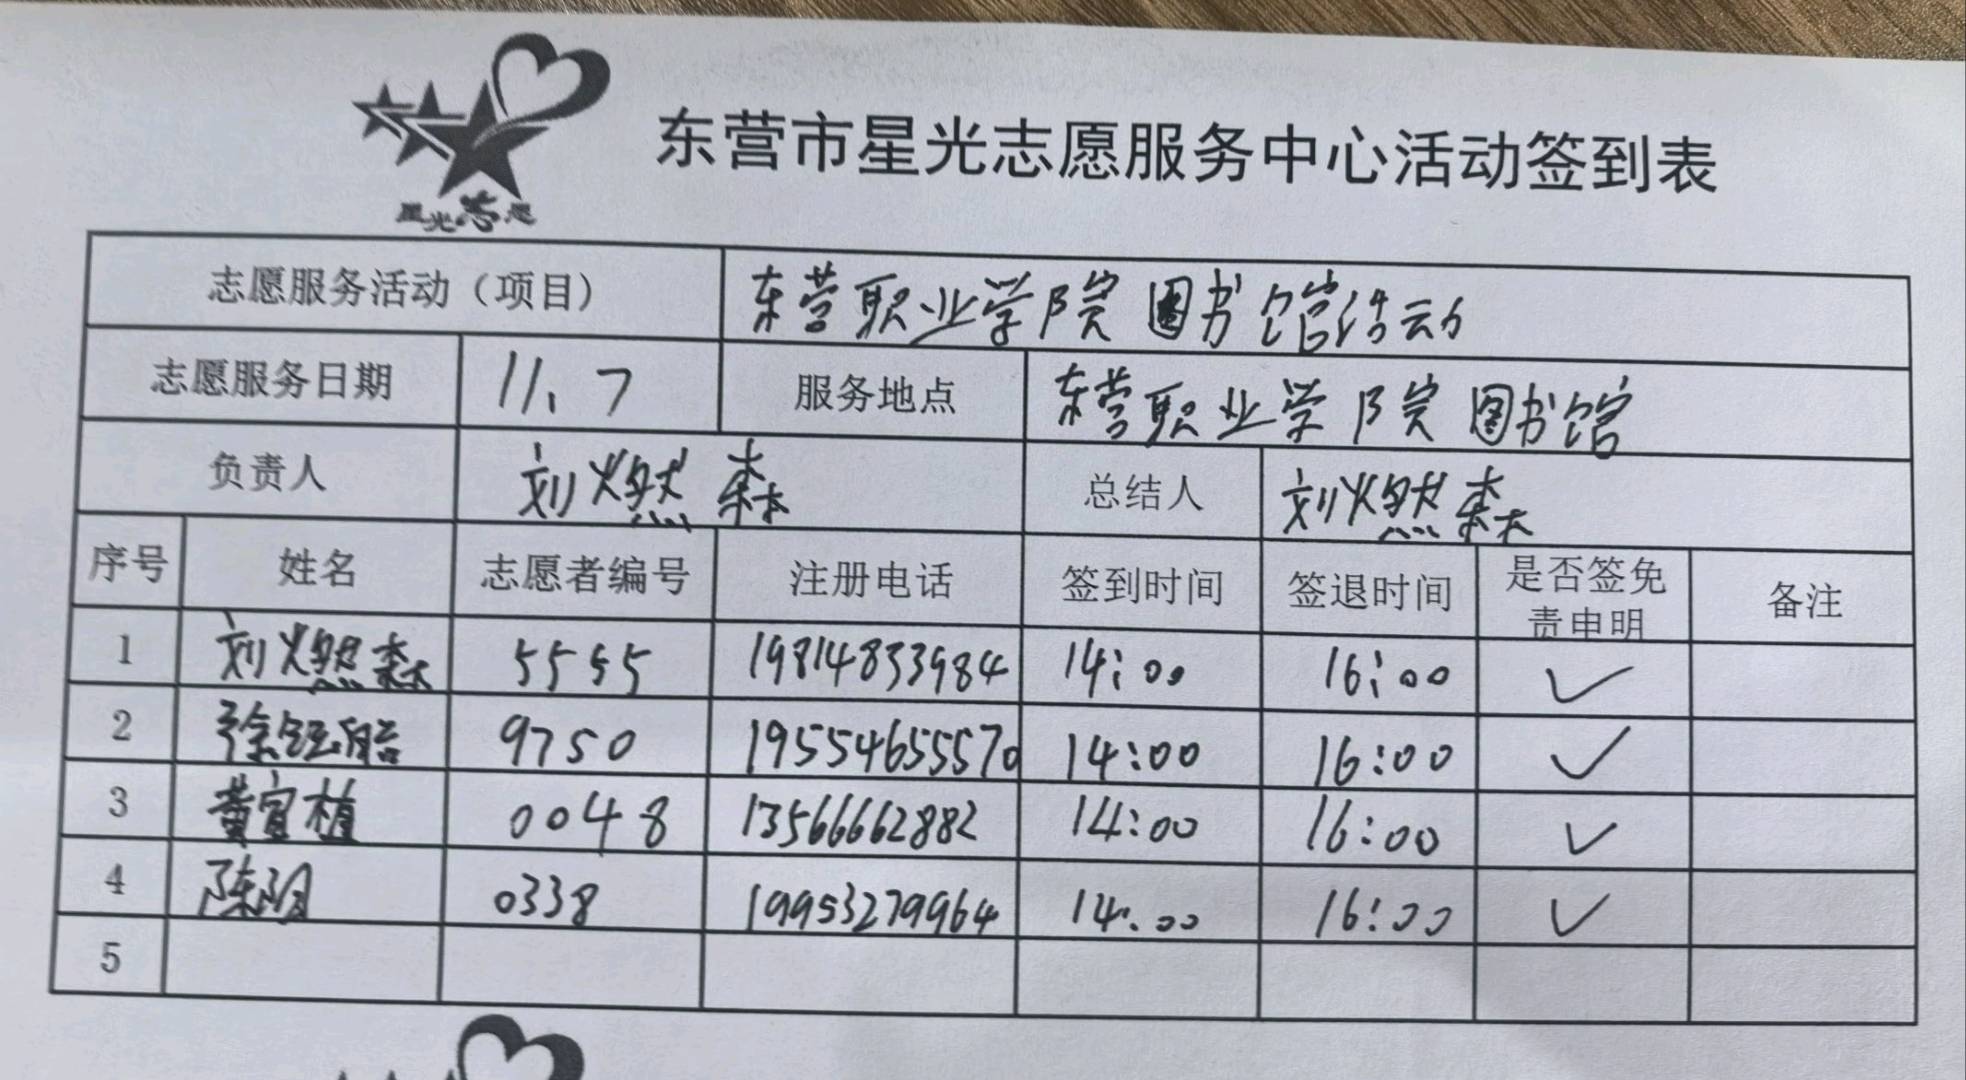 星光志愿
东营市星光志愿服务中心活动签到表
志愿服务活动（项目） 东营职业学院图书馆活动
志愿服务日期 11.7 服务地点 东营职业学院图书馆
负责人 刘燃森 总结人 刘燃森
序号 姓名 志愿者编号 注册电话 签到时间 签退时间 是否签免责申明 备注
1 刘燃森 5555 19814833984 14:00 16:00 ✓
2 徐 9750 19554655570 14:00 16:00 ✓
3 黄宜植 0048 13566662882 14:00 16:00 ✓
4 陈 0338 19953279964 14:00 16:00 ✓
5